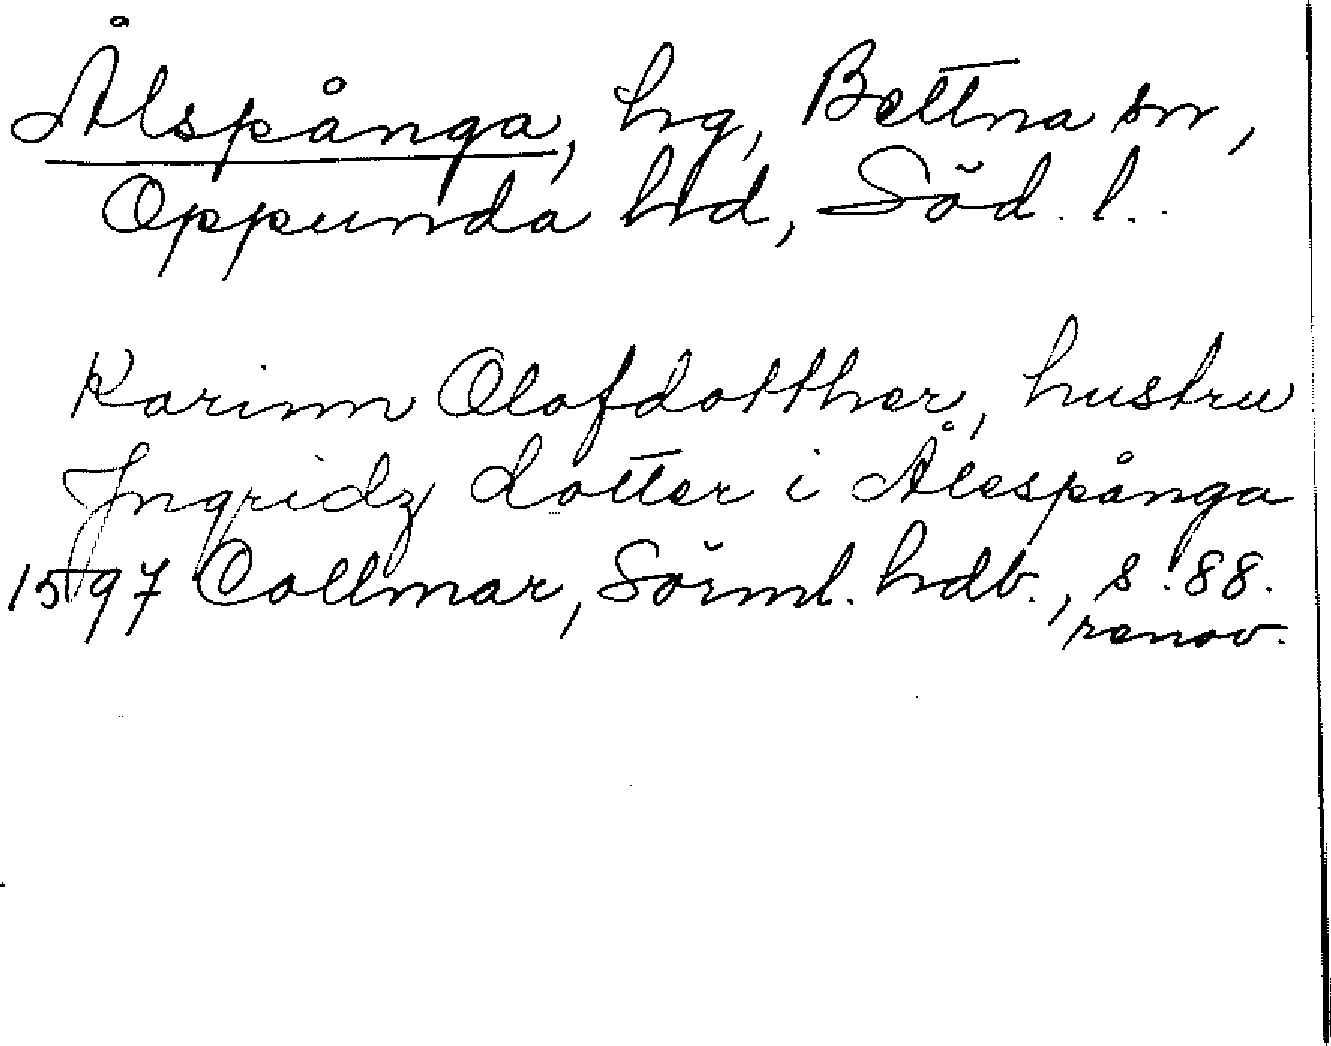 Ålspånga, hg, Bettna sn,
Oppunda hd, Söd. l..
Karinn Olofdotther, hustru
Ingridz dotter i Ålespånga
1597 Collmar, Sörml. hdb., s. 88.
renov.